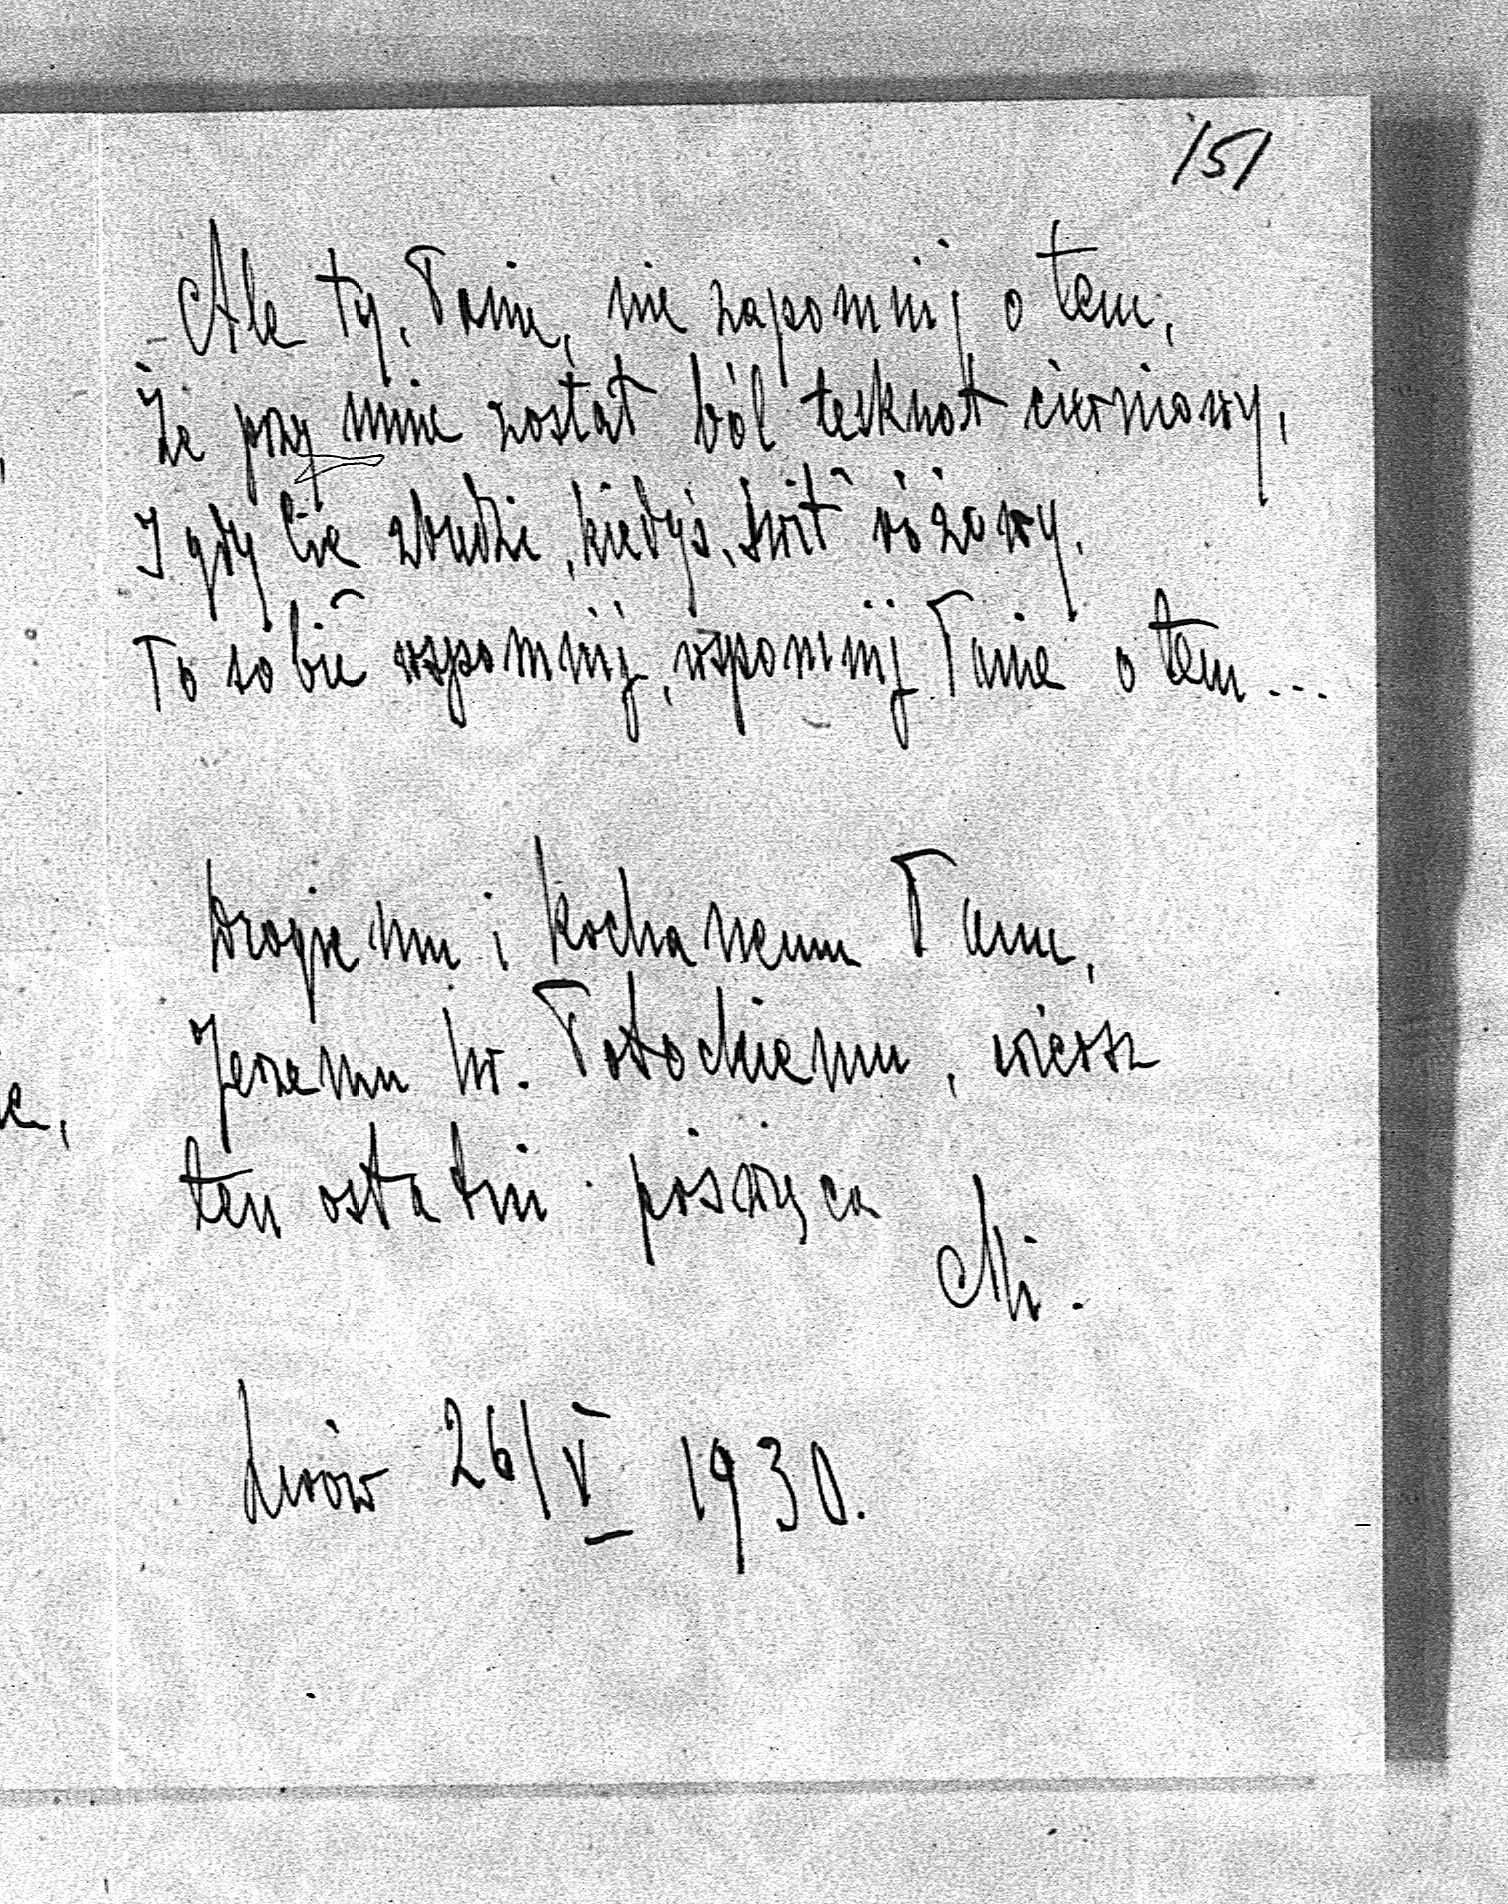 151
Ale ty, Panie, nie zapomnij o tem,
Że przy mnie został ból tęsknot cierniowy,
I gdy Cię zbudzi, kiedyś, świt różowy,
To sobie wspomnij, wspomnij Panie o tem...
Drogiemu i kochanemu Panu,
Jerzemu hr. Potockiemu, wiersz
ten ostatni poświęca
Mi.
Lwów 26/V 1930.